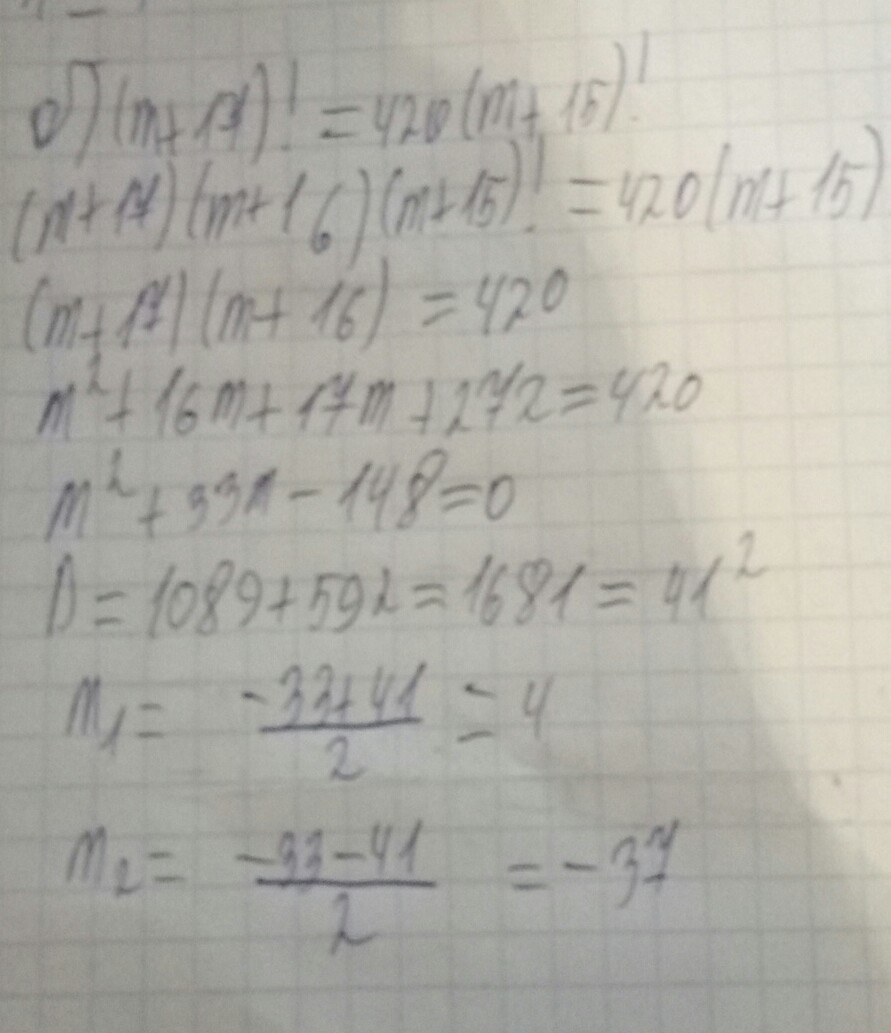 б) (m+17)! = 420(m+15)!
(m+17)(m+16)(m+15)! = 420(m+15)
(m+17)(m+16) = 420
m² + 16m + 17m + 272 = 420
m² + 33m - 148 = 0
D = 1089 + 592 = 1681 = 41²
m₁ = (-33+41)/2 = 4
m₂ = (-33-41)/2 = -37